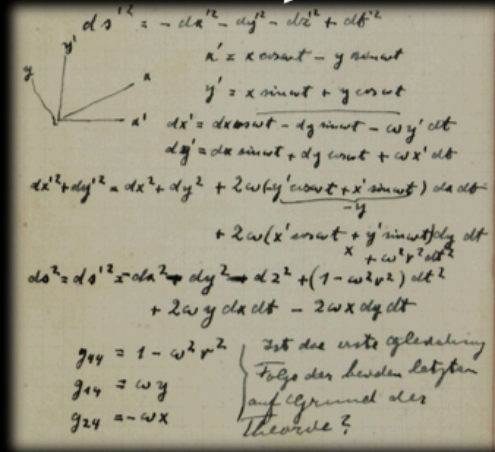 ds'² = -dx'² - dy'² - dz'² + dt'²
y' y x x'
x' = x cos ωt - y sin ωt
y' = x sin ωt + y cos ωt
dx' = dx cos ωt - dy sin ωt - ωy' dt
dy' = dx sin ωt + dy cos ωt + ωx' dt
dx'² + dy'² = dx² + dy² + 2ω(-y' cos ωt + x' sin ωt) dx dt
-y
+ 2ω(x' cos ωt + y' sin ωt) dy dt
x + ω²r² dt²
ds² = ds'² = -dx² - dy² - dz² + (1 - ω²r²) dt²
+ 2ωy dx dt - 2ωx dy dt
g₄₄ = 1 - ω²r²
g₁₄ = ωy
g₂₄ = -ωx
Ist die erste Gleichung
Folge der beiden letzten
auf Grund der
Theorie?